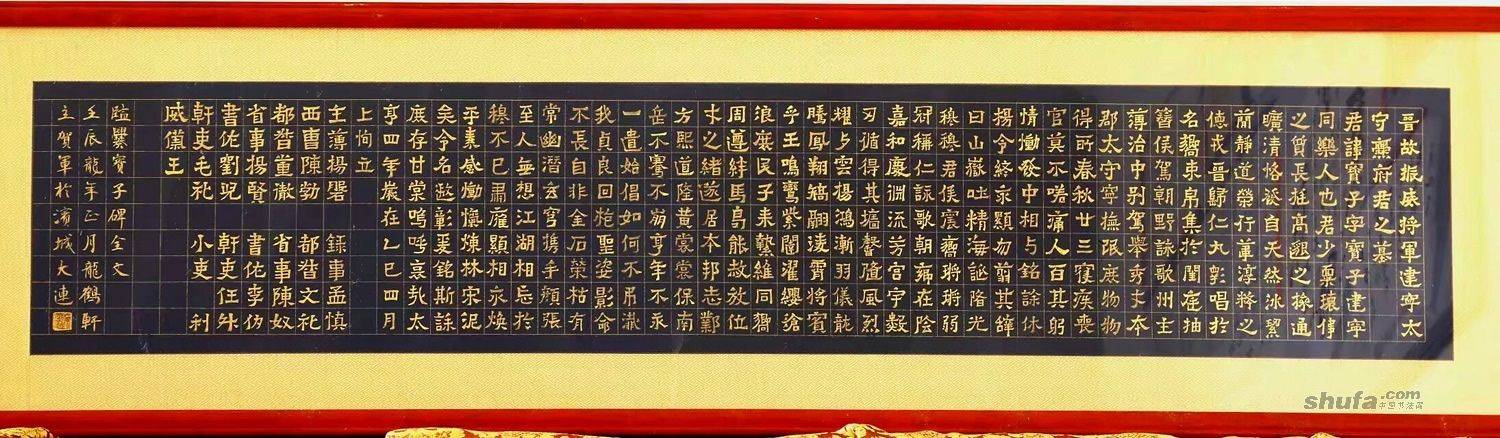 晉故振威將軍建寧太
守爨府君之墓
君諱寶子字寶子建寧
同樂人也君少稟瓌偉
之質長挺高邈之操通
曠清恪發自天然冰絜
蕳靜道榮行葦淳粹之
德戎晉歸仁九皋唱於
名嚮束帛集於閨庭抽
簪俟駕朝野詠歌州主
薄治中別駕舉秀才本
郡太守寧撫氓庶物物
得所春秋廿三寢疾喪
官莫不嗟痛人百其躬
情慟發中相与銘誄休
揚令終永顯勿翦其辭
曰山嶽吐精海誕陼光
穆穆君侯震嚮鏘鏘弱
冠稱仁詠歌朝鄉在陰
嘉和處淵流芳宮宇數
刃循得其墻馨隨風烈
耀与雲揚鴻漸羽儀龍
騰鳳翔矯翮淩霄將賓
乎王鳴鸞紫闥濯纓滄
浪庶民子來縶維同嚮
周遵絆馬曷能赦放位
才之緒遂居本邦志鄴
方熙道隆黃裳當保南
岳不騫不崩享年不永
一匱始倡如何不弔殲
我貞良回抱聖姿影命
不長自非金石榮枯有
常幽潛玄穹攜手顏張
至人無想江湖相忘於
穆不已肅雍顯相永
平素感慟慷林宗沒
矣令名遐彰爰銘斯誄
庶存甘棠嗚呼哀哉太
亨四年歲在乙巳四月
上恂立
主薄楊磐 錄事孟慎
西曹陳勃 都督文礼
都督董徹 省事陳奴
省事揚賢 書佐李仂
書佐劉兒 幹吏任升
幹吏毛礼 小吏利
威儀王
臨爨寶子碑全文
壬辰龍年正月龍鶴軒
主賀軍於濱城大連
shufa.com
中国书法网